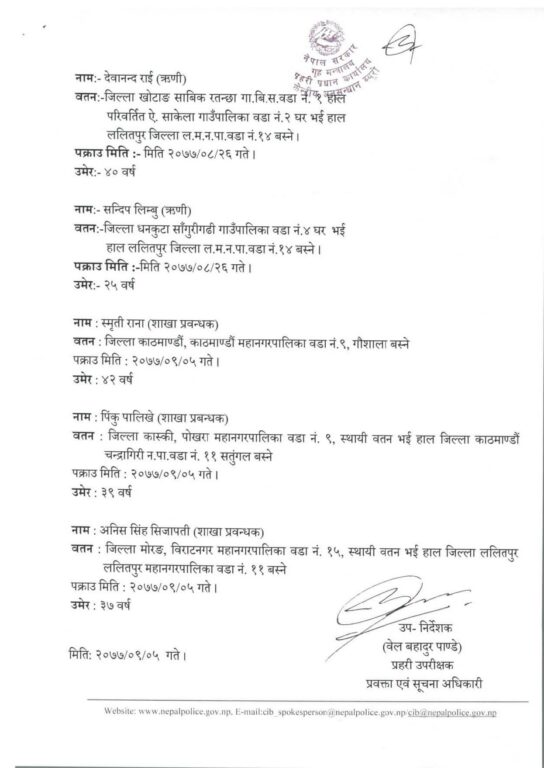 नेपाल सरकार
गृह मन्त्रालय
प्रहरी प्रधान कार्यालय
केन्द्रीय अनुसन्धान ब्यूरो
नाम:- देवानन्द राई (ऋणी)
वतन:-जिल्ला खोटाङ साबिक रतन्छा गा.बि.स.वडा नं. ९ हाल
परिवर्तित ऐ. साकेला गाउँपालिका वडा नं.२ घर भई हाल
ललितपुर जिल्ला ल.म.न.पा.वडा नं.१४ बस्ने।
पक्राउ मिति :- मिति २०७७/०८/२६ गते।
उमेर:- ४० वर्ष
नाम:- सन्दिप लिम्बु (ऋणी)
वतन:-जिल्ला धनकुटा साँगुरीगढी गाउँपालिका वडा नं.४ घर भई
हाल ललितपुर जिल्ला ल.म.न.पा.वडा नं.१४ बस्ने।
पक्राउ मिति :-मिति २०७७/०८/२६ गते।
उमेर:- २५ वर्ष
नाम : स्मृती राना (शाखा प्रवन्धक)
वतन : जिल्ला काठमाण्डौं, काठमाण्डौं महानगरपालिका वडा नं.९, गौशाला बस्ने
पक्राउ मिति : २०७७/०९/०५ गते।
उमेर : ४२ वर्ष
नाम : पिंकु पालिखे (शाखा प्रबन्धक)
वतन : जिल्ला कास्की, पोखरा महानगरपालिका वडा नं. ९, स्थायी वतन भई हाल जिल्ला काठमाण्डौं
चन्द्रागिरी न.पा.वडा नं. ११ सतुंगल बस्ने
पक्राउ मिति : २०७७/०९/०५ गते।
उमेर : ३९ वर्ष
नाम : अनिस सिंह सिजापती (शाखा प्रवन्धक)
वतन : जिल्ला मोरङ, विराटनगर महानगरपालिका वडा नं. १५, स्थायी वतन भई हाल जिल्ला ललितपुर
ललितपुर महानगरपालिका वडा नं. ११ बस्ने
पक्राउ मिति : २०७७/०९/०५ गते।
उमेर : ३७ वर्ष
उप- निर्देशक
(वेल बहादुर पाण्डे)
मिति: २०७७/०९/०५ गते।
प्रहरी उपरीक्षक
प्रवक्ता एवं सूचना अधिकारी
Website: www.nepalpolice.gov.np, E-mail:cib_spokesperson@nepalpolice.gov.np/cib@nepalpolice.gov.np